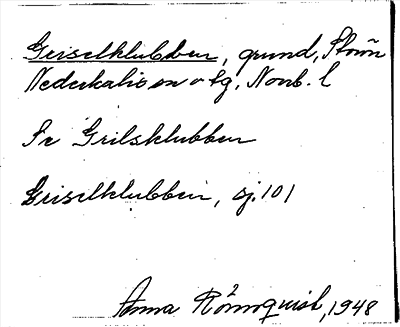 Geiselklubben, grund, Storön
Nederkalix sn o tg, Norrb. l
Se Grilsklubben
Griselklubben, sj. 101
Anna Rönnquist, 1948